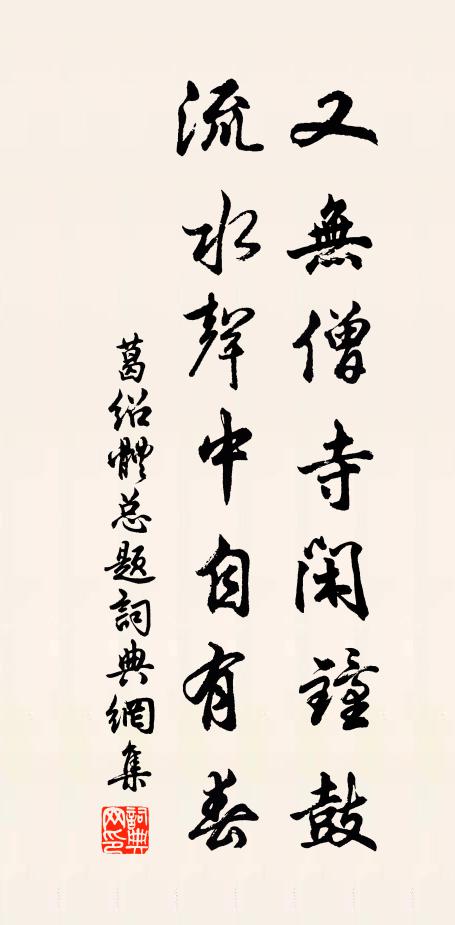 又無僧寺閑鐘鼓
流水聲中自有春
葛绍體总题詞典網集
詞典网印